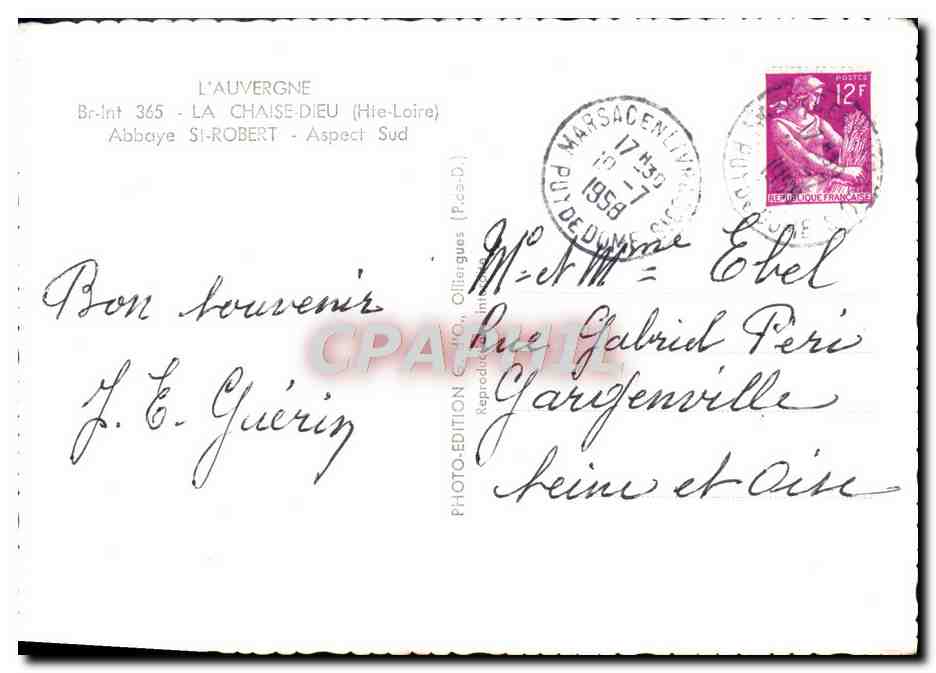 L'AUVERGNE
Br-Int 365 - LA CHAISE-DIEU (Hte-Loire)
Abbaye St-ROBERT - Aspect Sud
MARSAC EN LIVRADOIS
17 H 30
10 -7
1958
PUY DE DOME
POSTES
12F
REPUBLIQUE FRANÇAISE
Bon souvenir
J. E. Guérin
PHOTO-EDITION Olliergues (P.-de-D.)
Reproduction interdite
Mr et Mme Ebel
Rue Gabriel Peri
Gargenville
Seine et Oise
CPAPHIL